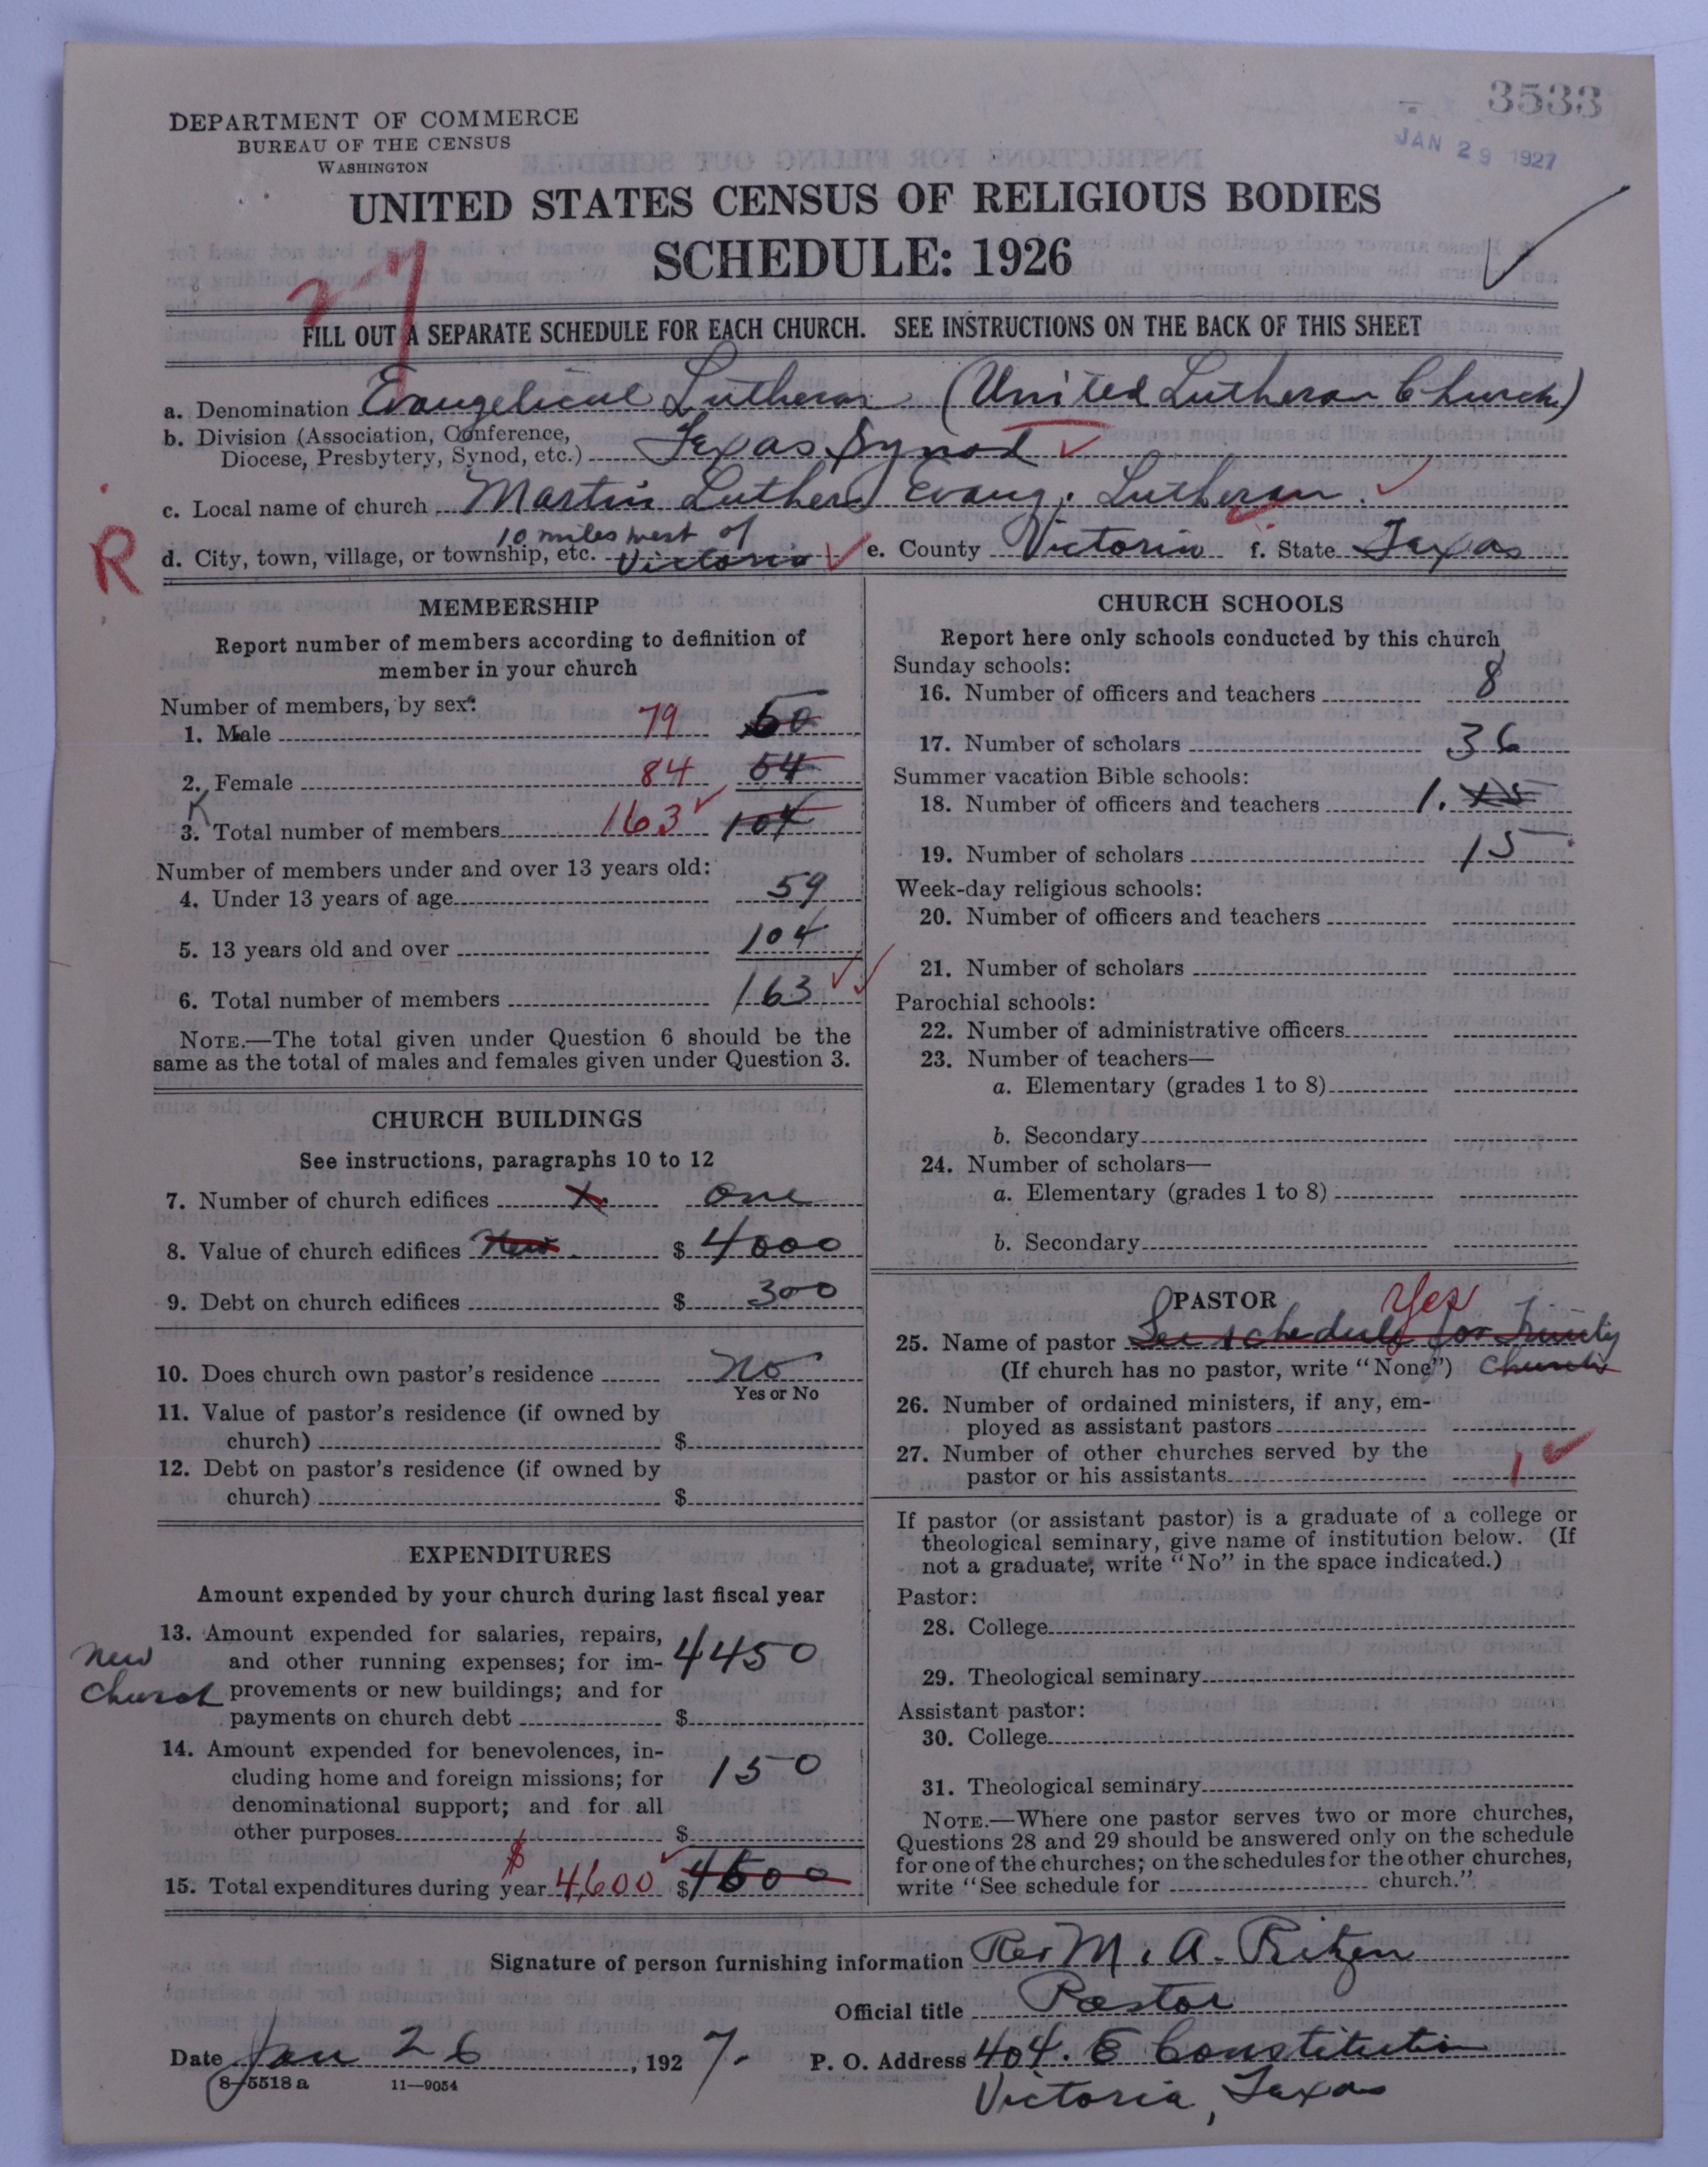 3533
JAN 29 1927
DEPARTMENT OF COMMERCE
BUREAU OF THE CENSUS
WASHINGTON
UNITED STATES CENSUS OF RELIGIOUS BODIES
SCHEDULE: 1926
FILL OUT A SEPARATE SCHEDULE FOR EACH CHURCH. SEE INSTRUCTIONS ON THE BACK OF THIS SHEET
a. Denomination Evangelical Lutheran (United Lutheran Church)
b. Division (Association, Conference,
Diocese, Presbytery, Synod, etc.) Texas Synod
c. Local name of church Martin Luther Evang. Lutheran.
10 miles west of
R d. City, town, village, or township, etc. Victoria e. County Victoria f. State Texas
MEMBERSHIP
Report number of members according to definition of
member in your church
Number of members, by sex:
1. Male 79 50
2. Female 84 54
3. Total number of members 163 104
Number of members under and over 13 years old:
4. Under 13 years of age 59
5. 13 years old and over 104
6. Total number of members 163
NOTE.—The total given under Question 6 should be the
same as the total of males and females given under Question 3.
CHURCH BUILDINGS
See instructions, paragraphs 10 to 12
7. Number of church edifices one
8. Value of church edifices New $ 4000
9. Debt on church edifices $ 300
10. Does church own pastor's residence No
Yes or No
11. Value of pastor's residence (if owned by
church) $
12. Debt on pastor's residence (if owned by
church) $
EXPENDITURES
Amount expended by your church during last fiscal year
13. Amount expended for salaries, repairs,
New and other running expenses; for im- 4450
Church provements or new buildings; and for
payments on church debt $
14. Amount expended for benevolences, in-
cluding home and foreign missions; for 150
denominational support; and for all
other purposes $
15. Total expenditures during year $ 4,600 $ 4500
CHURCH SCHOOLS
Report here only schools conducted by this church
Sunday schools:
16. Number of officers and teachers 8
17. Number of scholars 36
Summer vacation Bible schools:
18. Number of officers and teachers 1. 15
19. Number of scholars 15
Week-day religious schools:
20. Number of officers and teachers
21. Number of scholars
Parochial schools:
22. Number of administrative officers
23. Number of teachers—
a. Elementary (grades 1 to 8)
b. Secondary
24. Number of scholars—
a. Elementary (grades 1 to 8)
b. Secondary
PASTOR Yes
25. Name of pastor See schedule for Trinity
(If church has no pastor, write "None") Church
26. Number of ordained ministers, if any, em-
ployed as assistant pastors
27. Number of other churches served by the
pastor or his assistants 1
If pastor (or assistant pastor) is a graduate of a college or
theological seminary, give name of institution below. (If
not a graduate, write "No" in the space indicated.)
Pastor:
28. College
29. Theological seminary
Assistant pastor:
30. College
31. Theological seminary
NOTE.—Where one pastor serves two or more churches,
Questions 28 and 29 should be answered only on the schedule
for one of the churches; on the schedules for the other churches,
write "See schedule for church."
Signature of person furnishing information Rev M. A. Ritzen
Official title Pastor
Date Jan 26, 1927. P. O. Address 404. E Constitution
8—5518 a 11—9054
Victoria, Texas